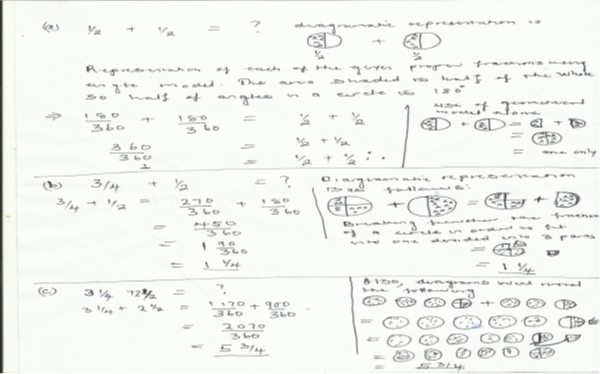 (a) 1/2 + 1/2 = ? diagramatic representation is
+
1/2 1/2
Representation of each of the given proper fractions using
angle model. The area shaded is half of the whole
so half of angles in a circle is 180°
⇒ 180/360 + 180/360 = 1/2 + 1/2
360/360 = 1/2 + 1/2
1 = 1/2 + 1/2 ∴
use of geometrical
model alone
+ = +
=
= one only
(b) 3/4 + 1/2 = ?
3/4 + 1/2 = 270/360 + 180/360
= 450/360
= 1 90/360
= 1 1/4
Diagramatic representation
is as follows:
+ = +
Breaking further the fraction
of a circle in order to fit
into one divided into 3 parts
=
= 1 1/4
(c) 3 1/4 + 2 1/2 = ?
3 1/4 + 2 1/2 = 1170/360 + 900/360
= 2070/360
= 5 3/4
Also, diagrams will reveal
the following
+
=
=
=
= 5 3/4